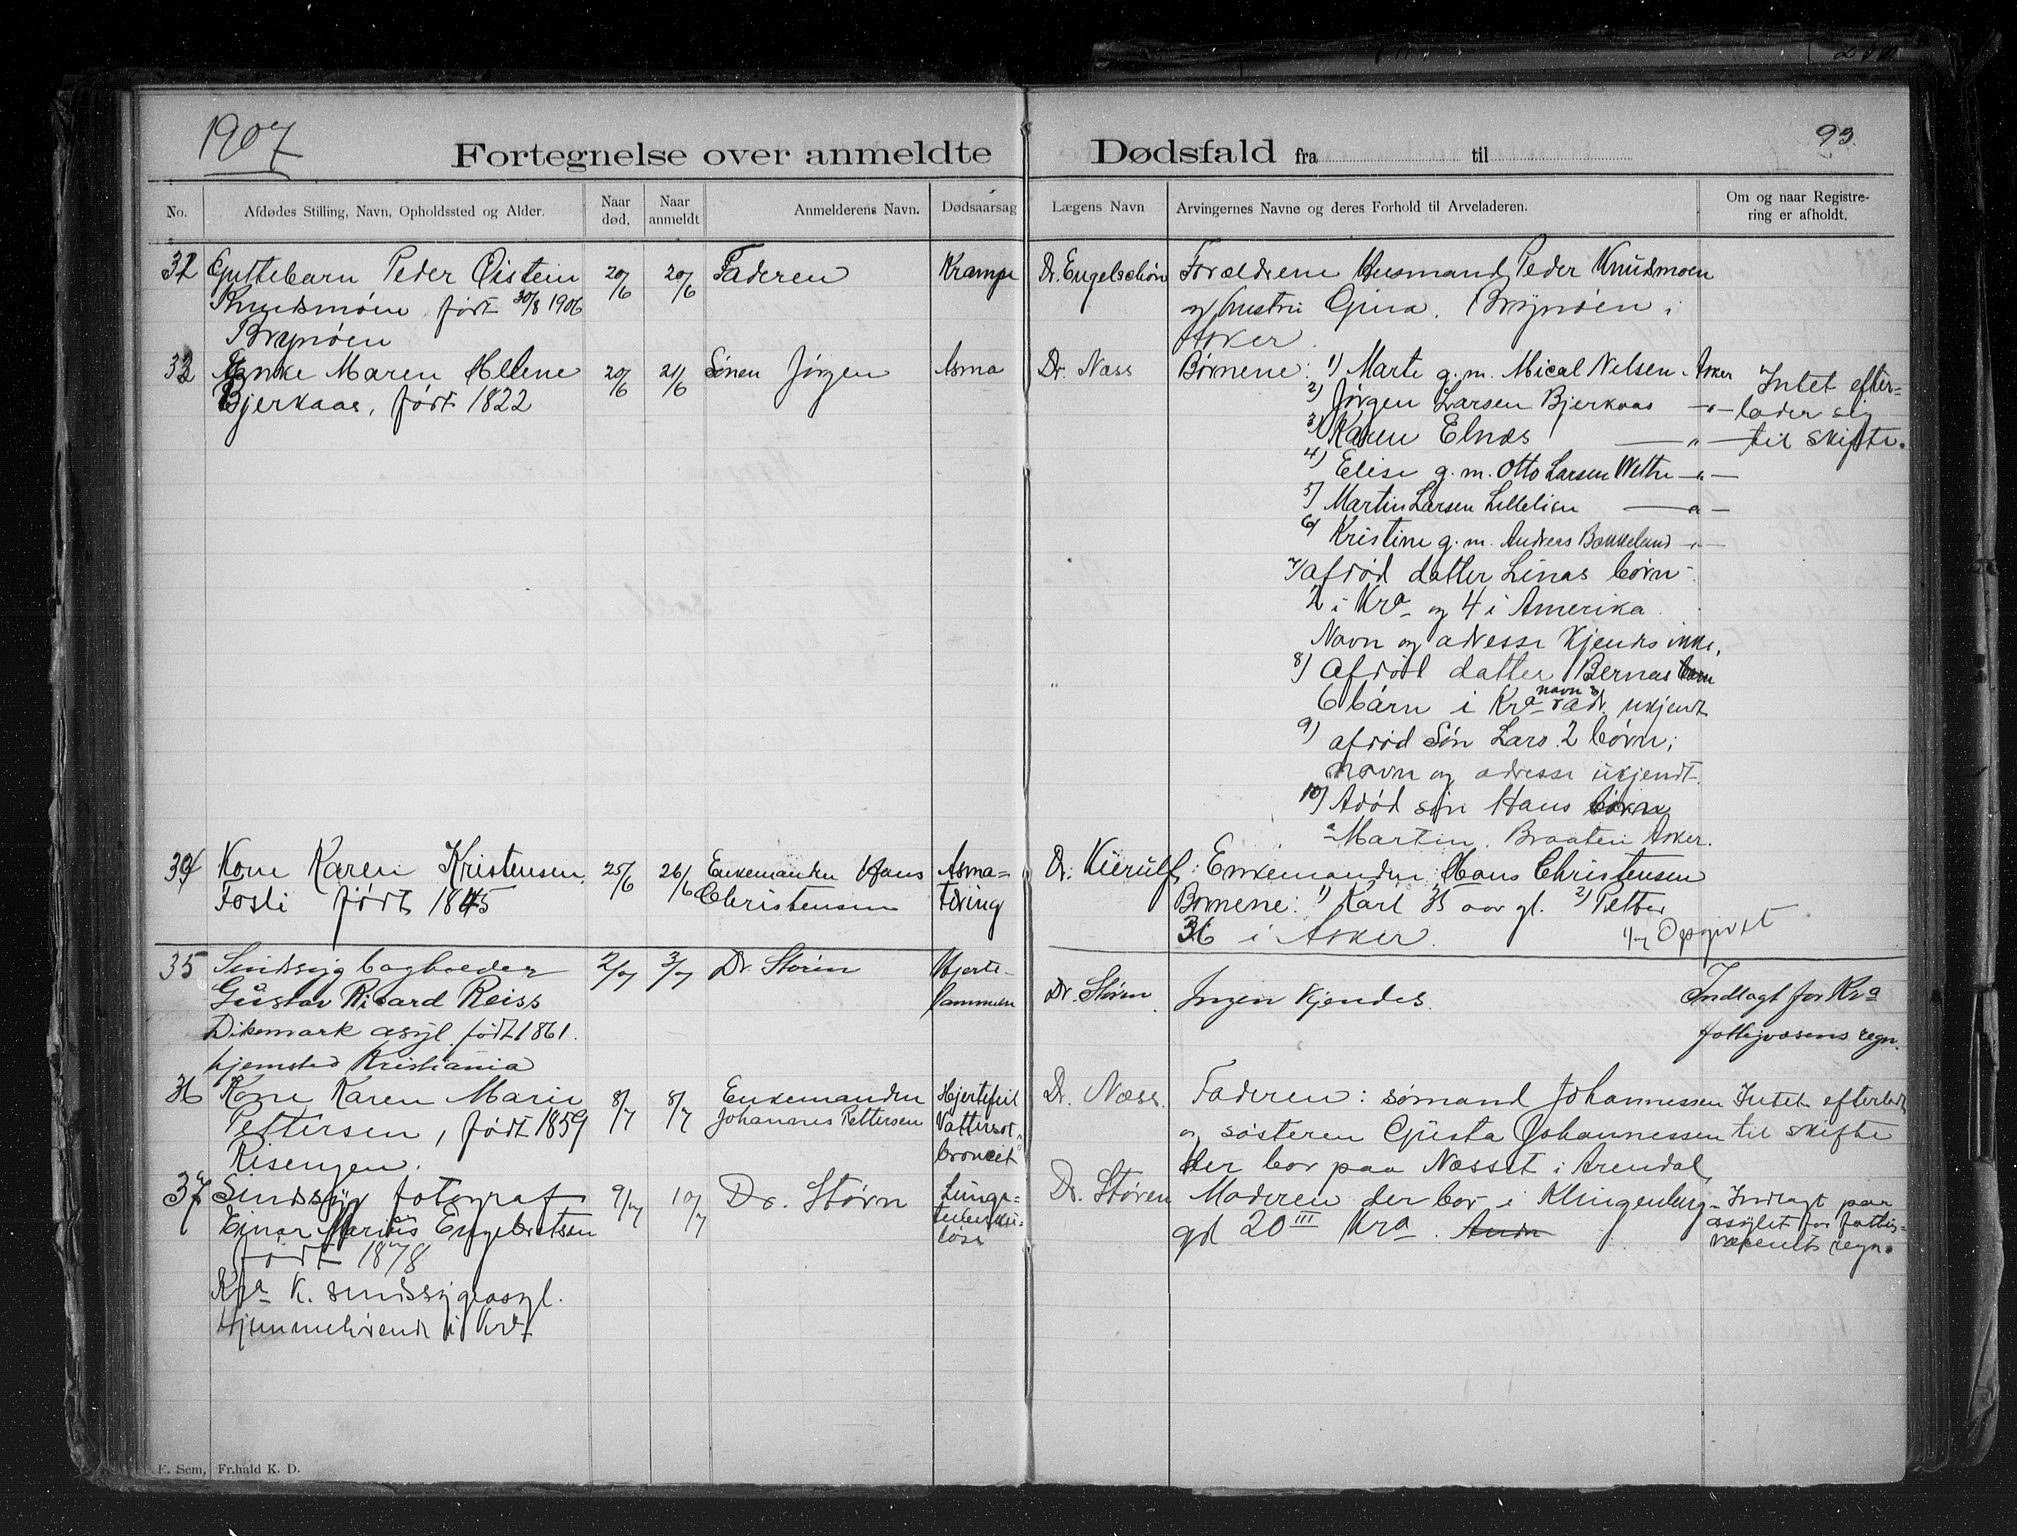 1907
93.
Fortegnelse over anmeldte Dødsfald fra til
No.
Afdødes Stilling, Navn, Opholdssted og Alder.
Naar død.
Naar anmeldt
Anmelderens Navn.
Dødsaarsag
Lægens Navn
Arvingernes Navne og deres Forhold til Arveladeren.
Om og naar Registre-
ring er afholdt.
32 Guttebarn Peder Øistein
Knudsmoen født 30/8 1906
Brynøen
20/6
20/6
Faderen
Krampe
Dr. Engelschøn
Forældrene Husmand Peder Knudsmoen
og hustru Gina. Brynøen i
Asker.
33 Enke Maren Helene
Bjerkaas, født 1822
20/6
21/6
Sønen Jørgen
Asma
Dr. Næss
Børnene: 1) Marte g.m. Mical Nilsen Asker
2) Jørgen Larsen Bjerkaas —"—
3) Karen Elnæs —"—
4) Elise g.m. Otto Larsen Wethre —"—
5) Martin Larsen Lillelien —"—
6) Kristine g.m. Anders Bakkeland —"—
7) afdød datter Linas børn
2 i Kra og 4 i Amerika.
Navn og adresse kjendes ikke.
8) afdød datter Bernas
6 børn i Kra navn & adr. ukjendt
9) afdød Søn Lars 2 børn;
navn og adresse ukjendt.
10) Adød søn Hans
Martin. Braaten Asker.
Intet efter-
lader sig
til skifte.
34 Kone Karen Kristensen
Fosli født 1845
25/6
26/6
Enkemanden Hans
Christensen
Asma-
tæring
Dr. Kierulf:
Enkemanden Hans Christensen
Børnene: 1) Karl 35 aar gl. 2) Petter
36 i Asker.
1/7 Opgivet
35 Sindssyg bogholder
Gustav Ricard Reiss
Dikemark asyl. født 1861.
hjemsted Kristiania
2/7
3/7
Dr. Støren
Hjerte-
lammelse
Dr. Støren.
Ingen kjendes.
Indlagt for Kra
fattigvæsens regn.
36 Kone Karen Marie
Pettersen, født 1859
Risengen.
8/7
8/7
Enkemanden
Johannes Pettersen
Hjertefeil
Vattersot
broncit
Dr. Næss.
Faderen: sømand Johannessen
og søsteren Gusta Johannessen
der bor paa Næsset i Arendal
Intet efterladt
til skifte
37 Sindssyg fotograf
Einar Marius Engebretsen
født 1878
Kra K. sindssygeasyl.
Hjemmehørende i Kra
9/7
10/7
Dr. Støren
Lunge-
tuberku-
løse
Dr. Støren
Moderen der bor i Klingenberg-
gd 20 III Kra.
Indlagt paa
asylet for fattig-
væsenets regn.
E. Sem, Fr.hald K. D.